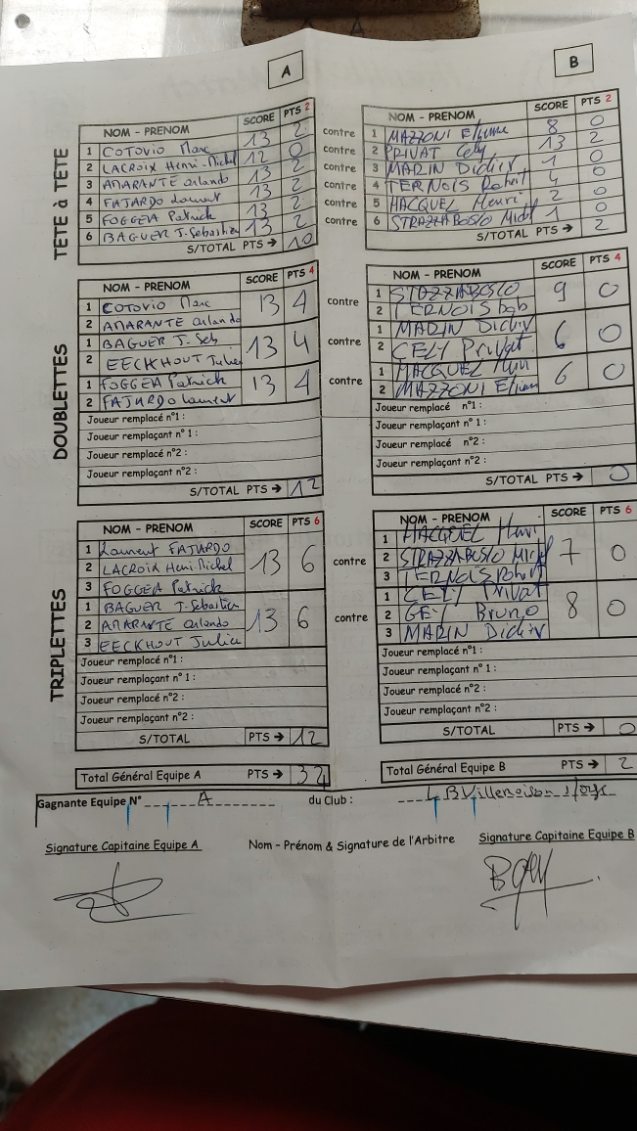 A B
TETE à TETE
NOM - PRENOM SCORE PTS 2 NOM - PRENOM SCORE PTS 2
1 COTOVIO Marc 13 2 contre 1 MAZZONI Etienne 8 0
2 LACROIX Henri-Michel 12 0 contre 2 PRIVAT Cely 13 2
3 AMARANTE Orlando 13 2 contre 3 MARIN Didier 1 0
4 FAJARDO Laurent 13 2 contre 4 TERNOIS Robert 4 0
5 FOGGEA Patrick 13 2 contre 5 HACQUEL Henri 2 0
6 BAGUER J. Sebastien 13 2 contre 6 STRAZZABOSCO Michel 1 0
S/TOTAL PTS → 10 S/TOTAL PTS → 2
DOUBLETTES
NOM - PRENOM SCORE PTS 4 NOM - PRENOM SCORE PTS 4
1 COTOVIO Marc 13 4 contre 1 STRAZZABOSCO 9 0
2 AMARANTE Orlando 2 TERNOIS Bob
1 BAGUER J. Seb 13 4 contre 1 MARIN Didier 6 0
2 EECKHOUT Julien 2 CELY Privat
1 FOGGEA Patrick 13 4 contre 1 HACQUEL Henri 6 0
2 FAJARDO Laurent 2 MAZZONI Etienne
Joueur remplacé n°1 : Joueur remplacé n°1 :
Joueur remplaçant n° 1 : Joueur remplaçant n° 1 :
Joueur remplacé n°2 : Joueur remplacé n°2 :
Joueur remplaçant n°2 : Joueur remplaçant n°2 :
S/TOTAL PTS → 12 S/TOTAL PTS → 0
TRIPLETTES
NOM - PRENOM SCORE PTS 6 NOM - PRENOM SCORE PTS 6
1 Laurent FAJARDO 13 6 contre 1 HACQUEL Henri 7 0
2 LACROIX Henri-Michel 2 STRAZZABOSCO Michel
3 FOGGEA Patrick 3 TERNOIS Robert
1 BAGUER J. Sebastien 13 6 contre 1 CELY Privat 8 0
2 AMARANTE Orlando 2 GEY Bruno
3 EECKHOUT Julien 3 MARIN Didier
Joueur remplacé n°1 : Joueur remplacé n°1 :
Joueur remplaçant n° 1 : Joueur remplaçant n° 1 :
Joueur remplacé n°2 : Joueur remplacé n°2 :
Joueur remplaçant n°2 : Joueur remplaçant n°2 :
S/TOTAL PTS → 12 S/TOTAL PTS → 0
Total Général Equipe A PTS → 34 Total Général Equipe B PTS → 2
Gagnante Equipe N° A du Club :
Signature Capitaine Equipe A Nom - Prénom & Signature de l'Arbitre Signature Capitaine Equipe B